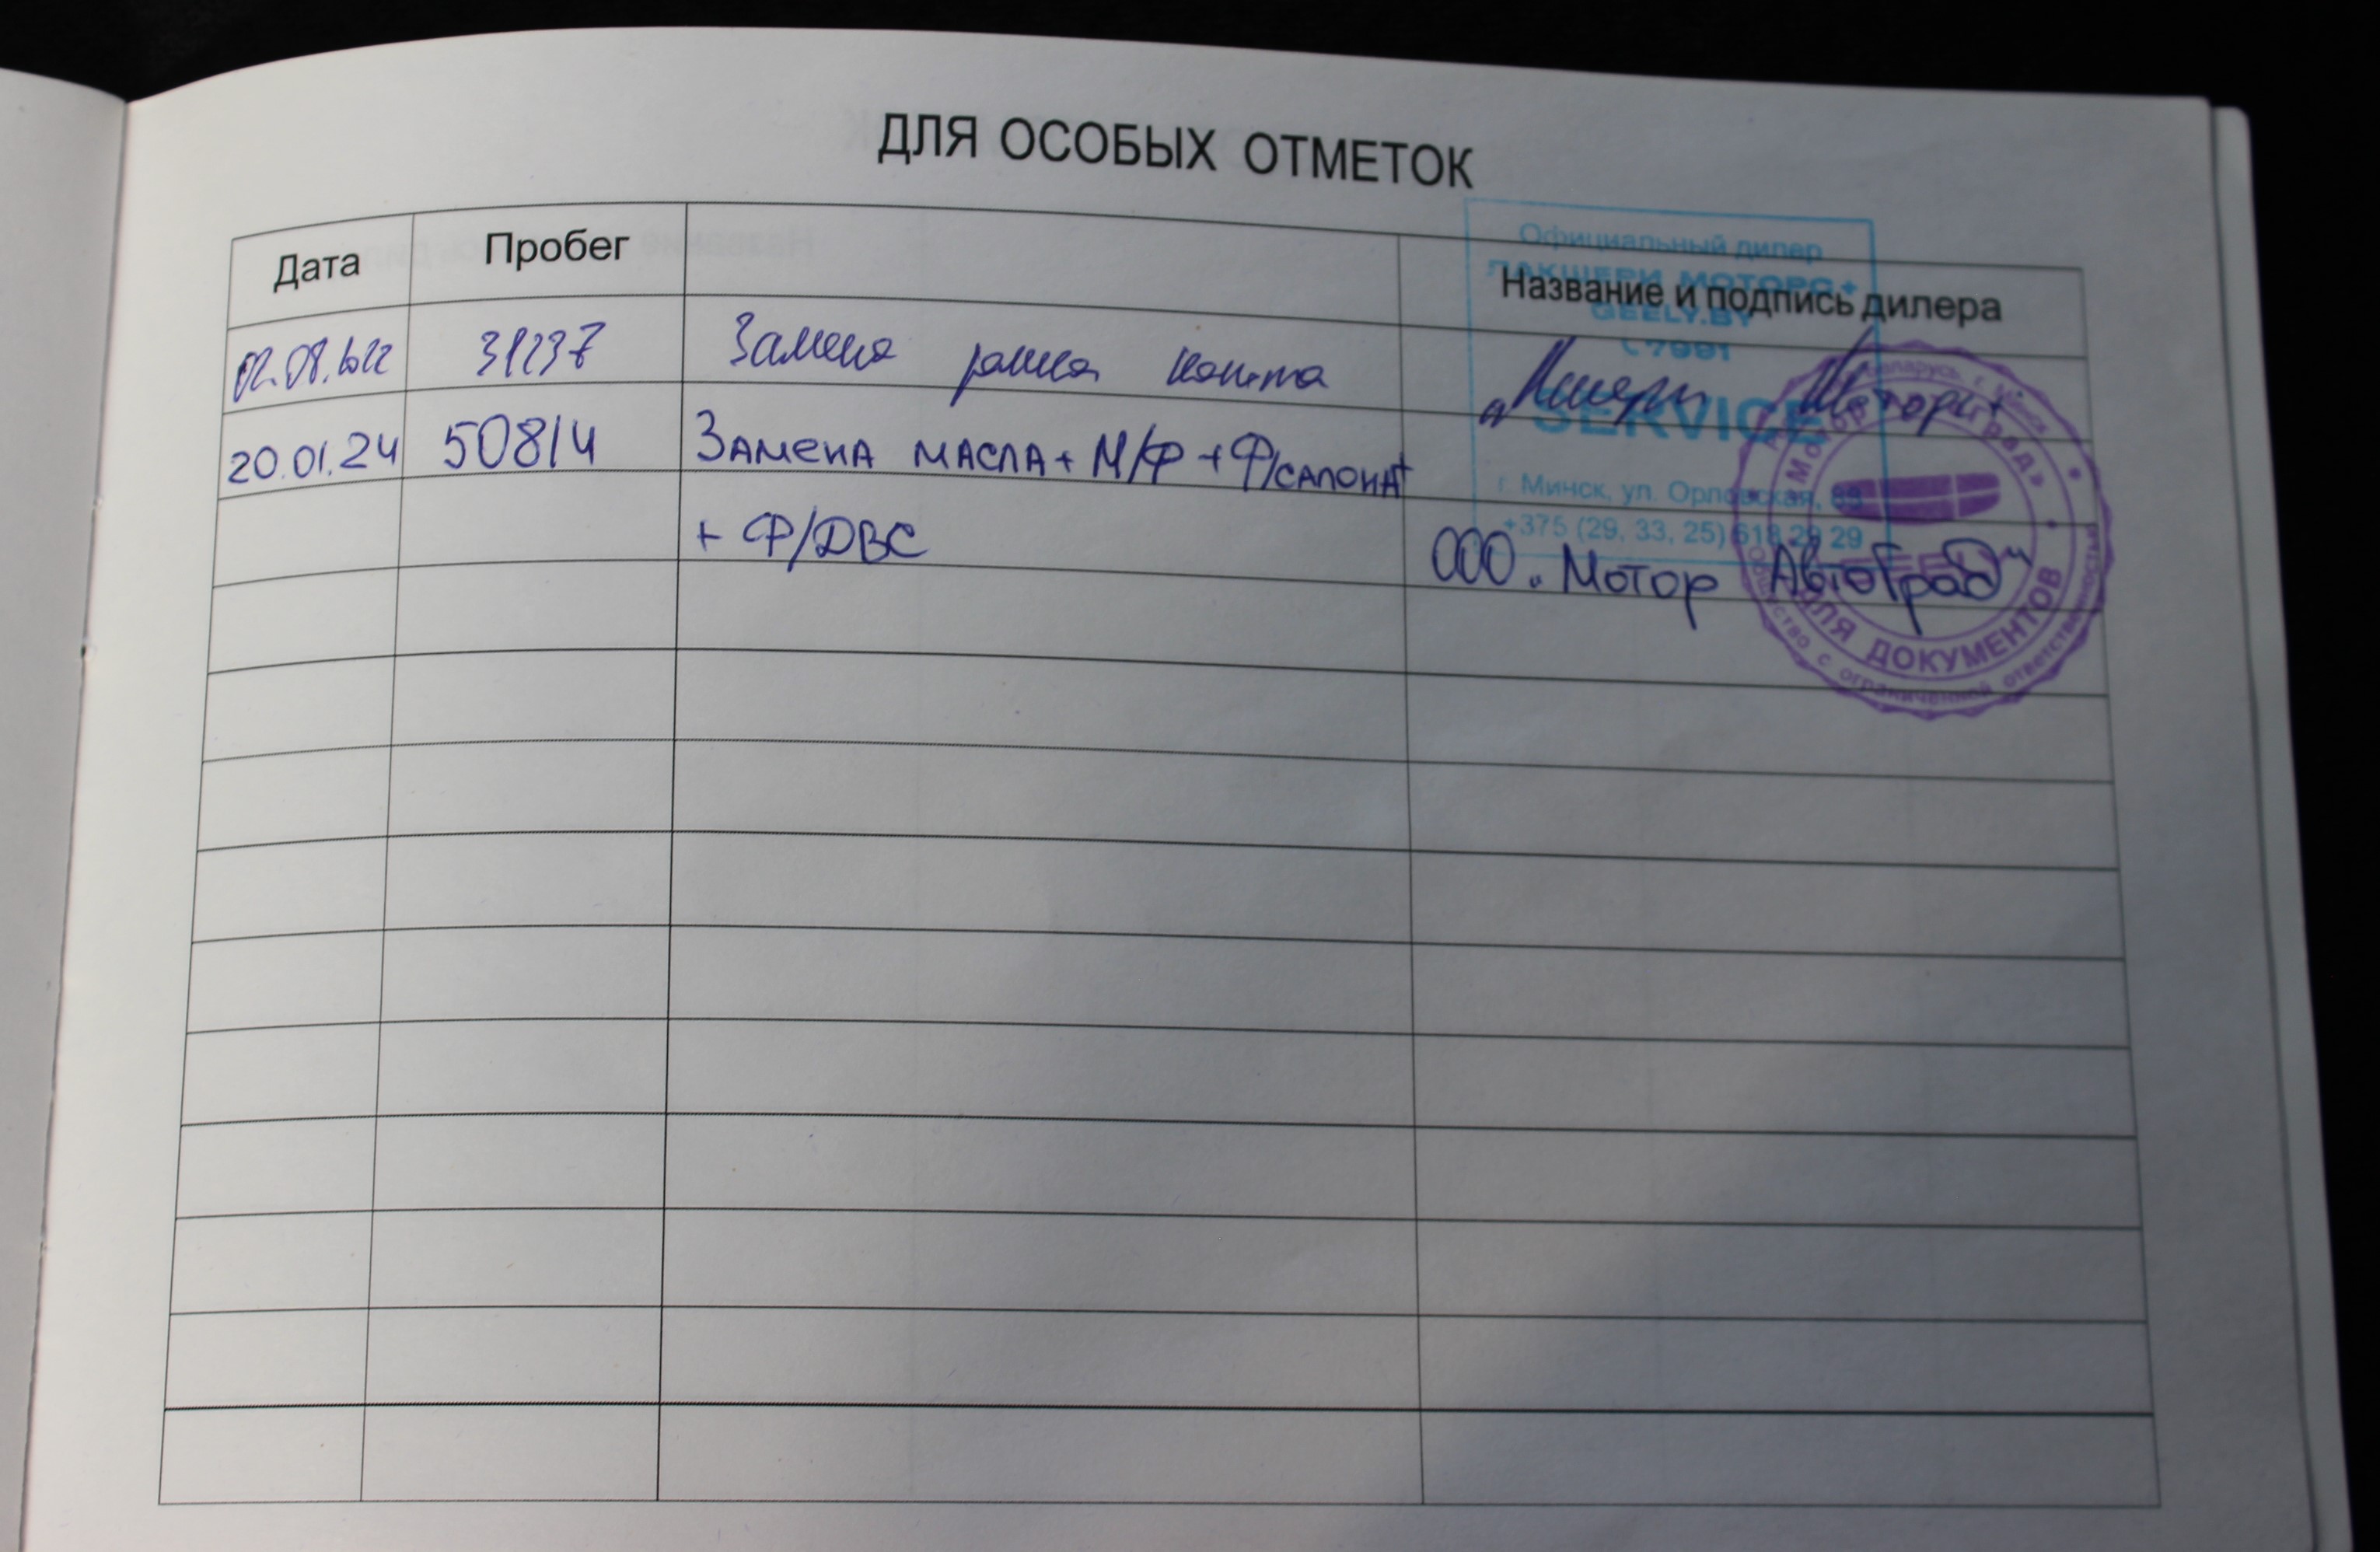 ДЛЯ ОСОБЫХ ОТМЕТОК
Дата Пробег Название и подпись дилера
Официальный дилер
ЛАКШЕРИ МОТОРС+
GEELY.BY
7991
SERVICE
г. Минск, ул. Орловская,
+375 (29, 33, 25) 618 29 29
02.08.2022 31237 Замена
20.01.24 50814 Замена масла + М/Ф + Ф/салона +
+ Ф/ДВС ООО „Мотор АвтоГрад"
Беларусь, г. Минск
ДЛЯ ДОКУМЕНТОВ
общество с ограниченной ответственностью